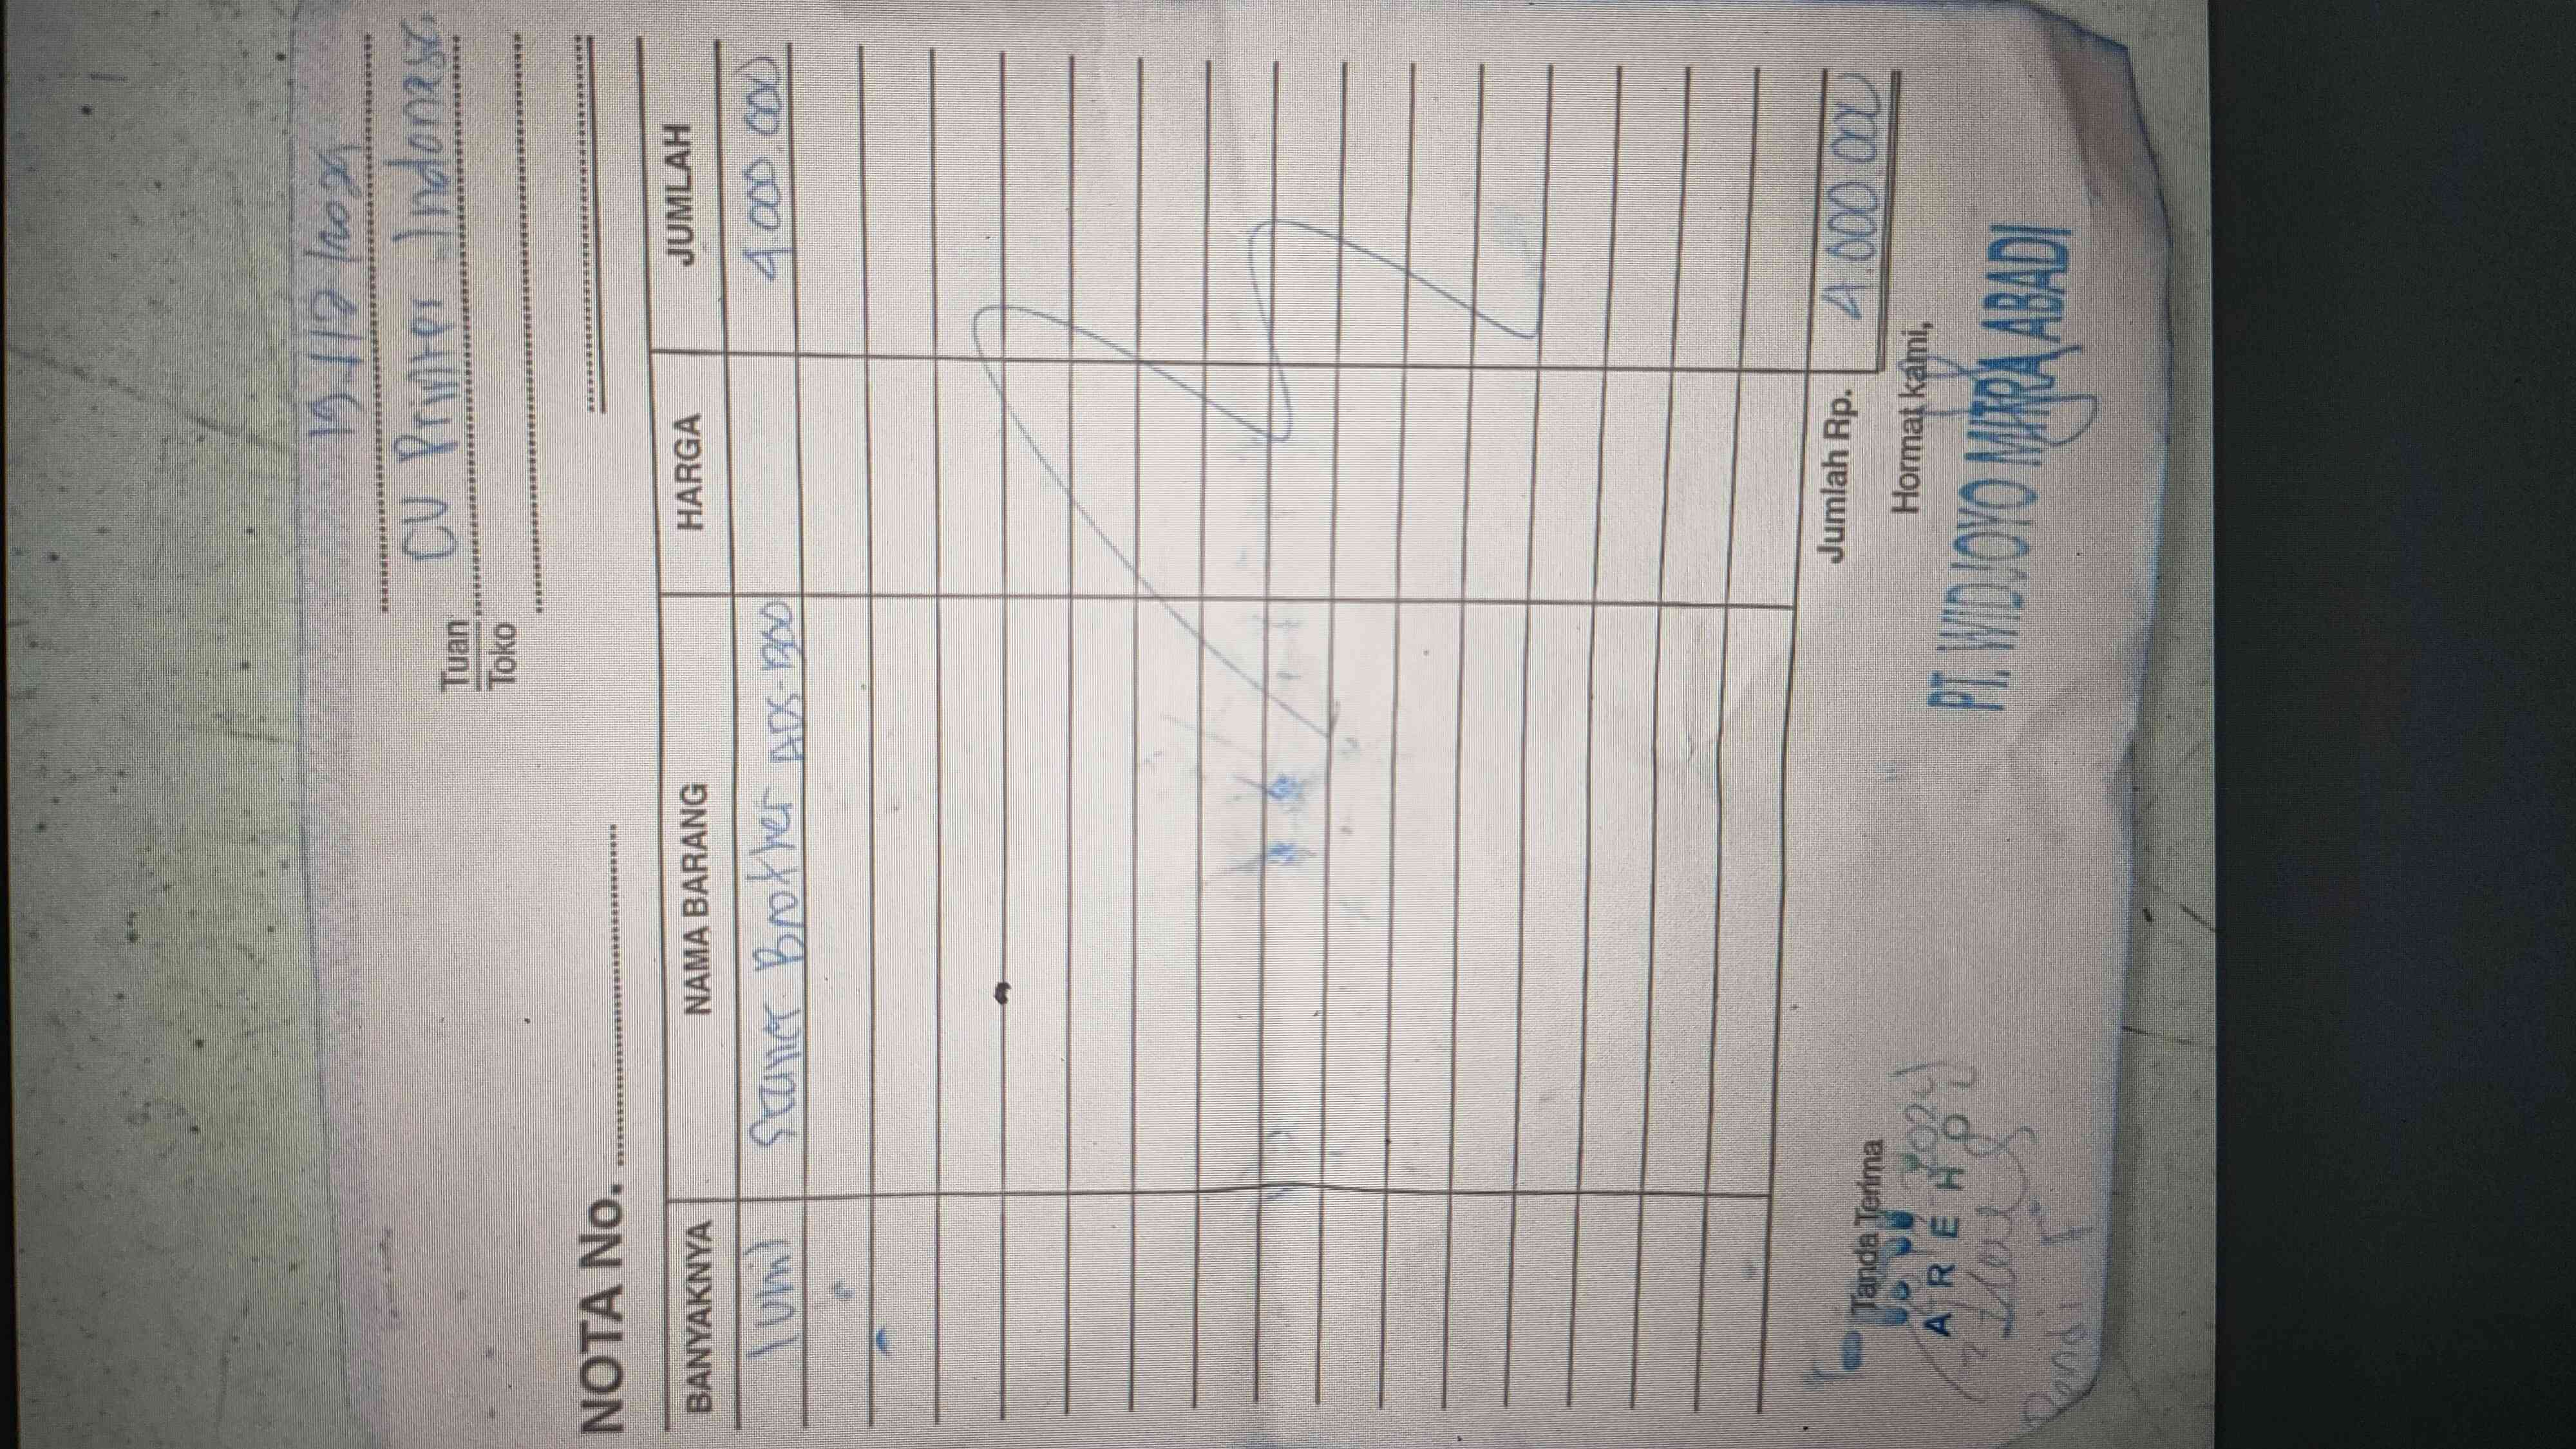 CV Printer Indonesia
Tuan
Toko
NOTA No.
BANYAKNYA NAMA BARANG HARGA JUMLAH
1 Unit Scaner Brother ADS-1300 4.000.000
Jumlah Rp. 4.000.000
Tanda Terima Hormat kami,
PT. WIDJOYO MITRA ABADI